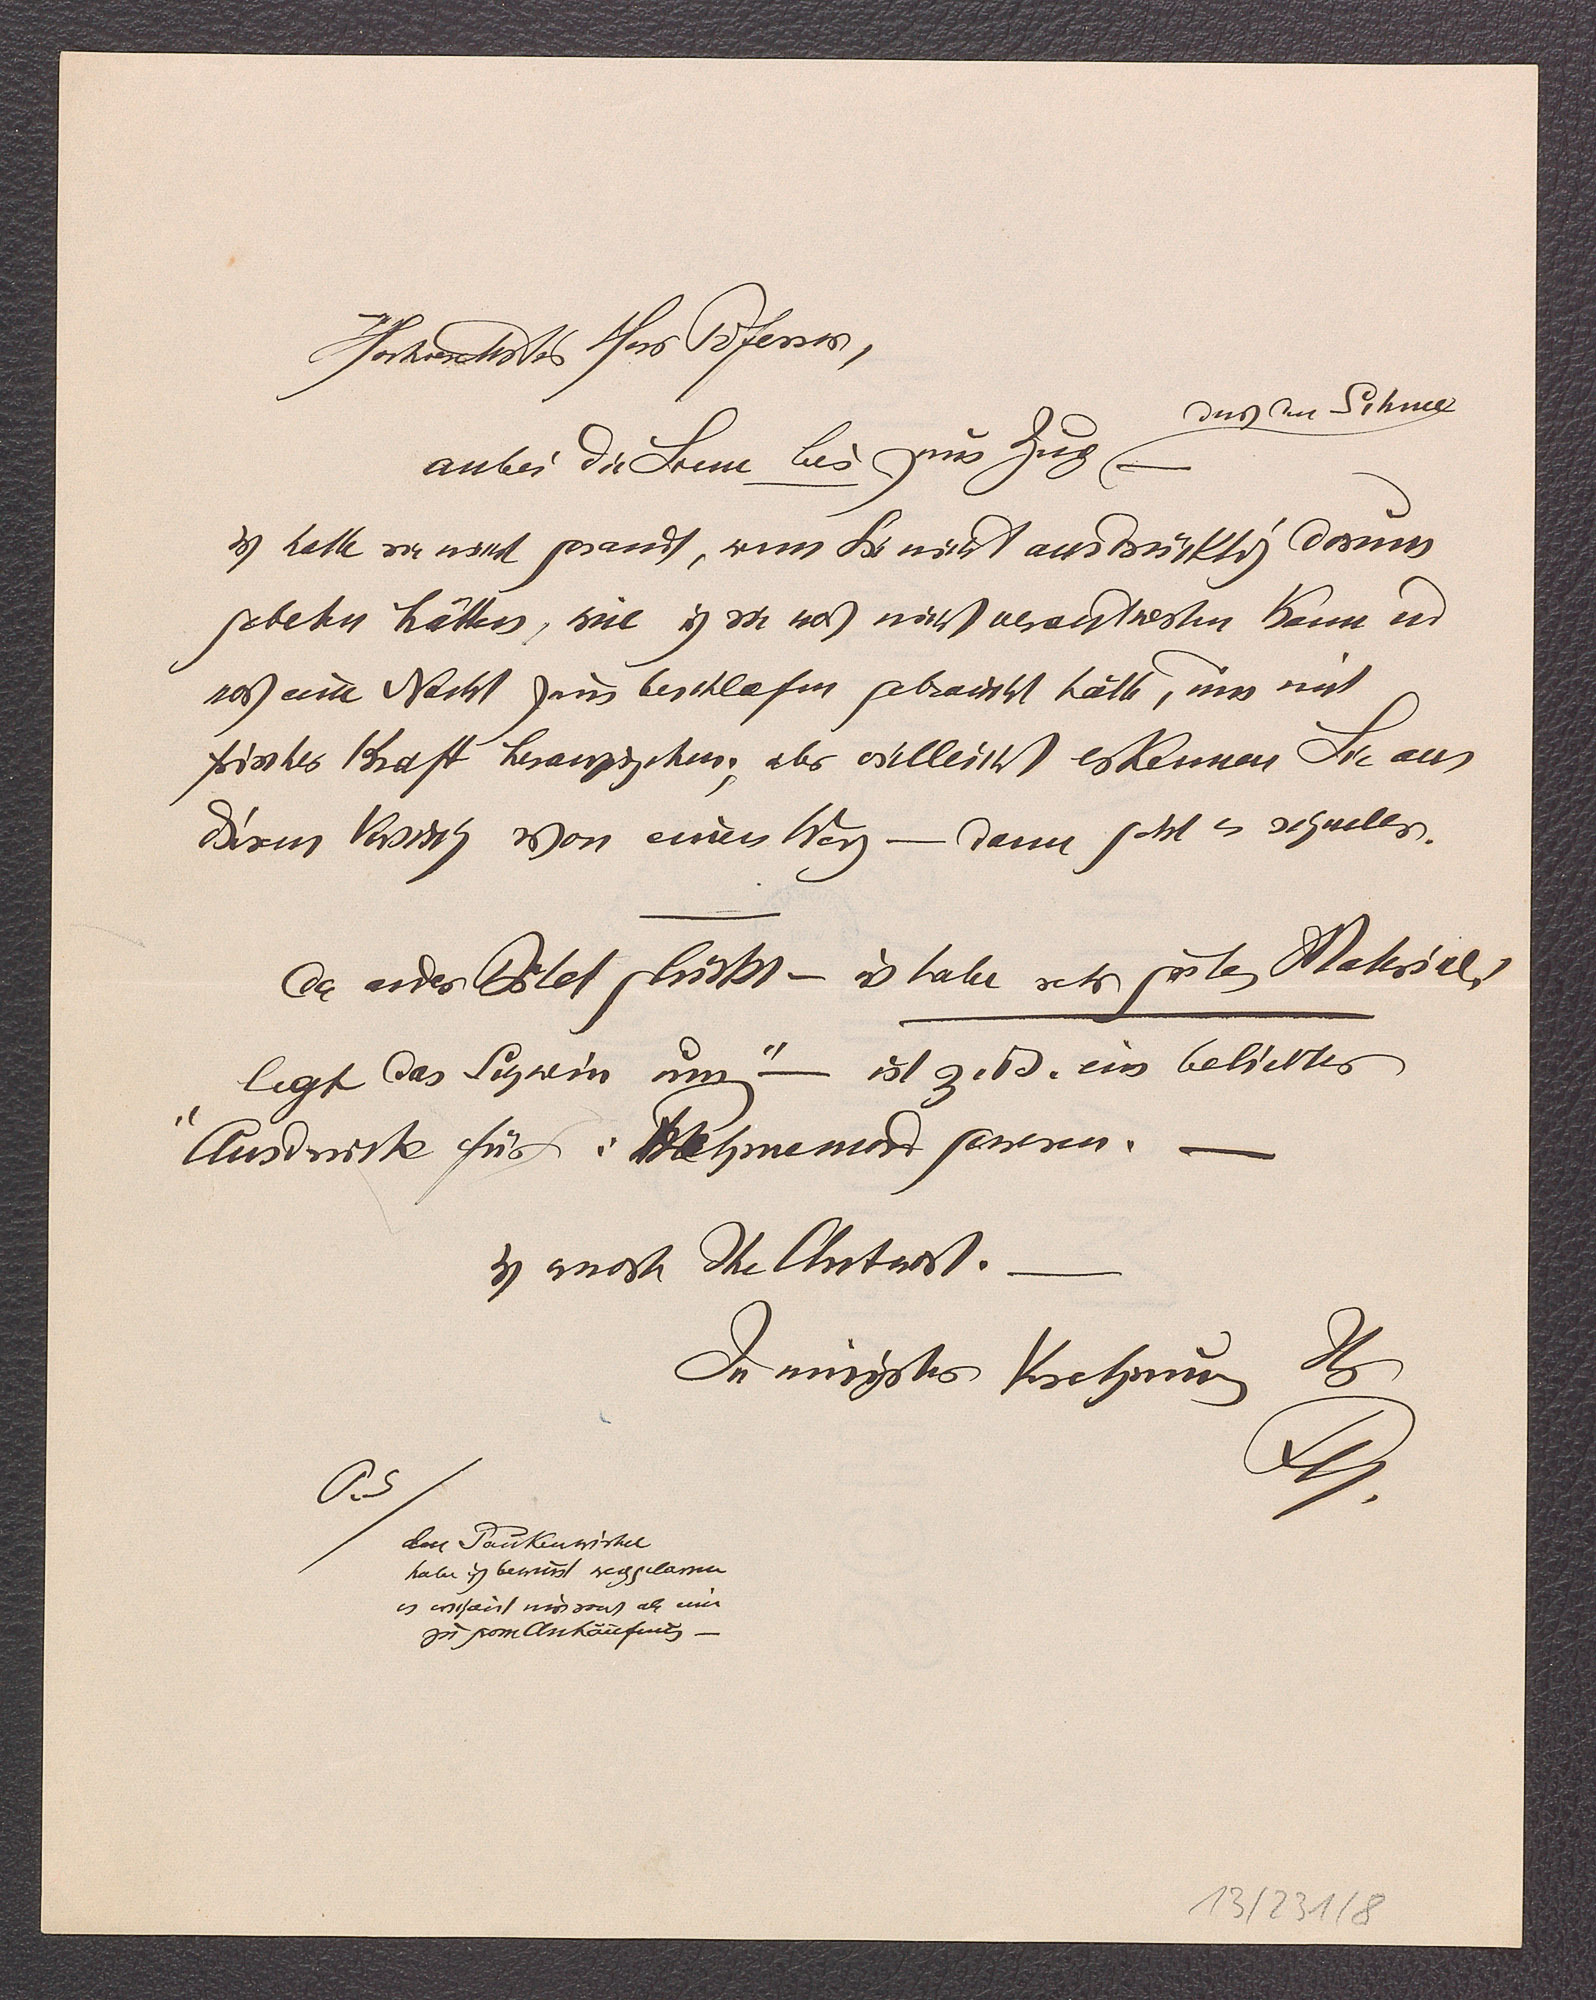 Hochverehrter Herr Professor,
durch den Schnee
anbei die Scene bis zum Zug —
ich hätte sie nicht gesandt, wenn Sie nicht ausdrücklich darum
gebeten hätten, weil ich sie noch nicht verantworten kann und
noch eine Nacht zum beschlafen gebraucht hätte, um mit
frischer Kraft heranzugehen; aber vielleicht erkennen Sie aus
diesem Versuch schon einen Weg — dann geht es schneller.
Da — ich habe sehr gutes Material,
legt das Schwein um" — ist z. B. ein beliebter
"Ausdruck für gewesen. —
ich erwarte Ihre Antwort. —
In Verehrung Ihr
P.S
den Paukenwirbel
habe ich bewusst weggelassen
es erscheint mir sonst als eine
zu grosse Anhäufung —
13/231/8